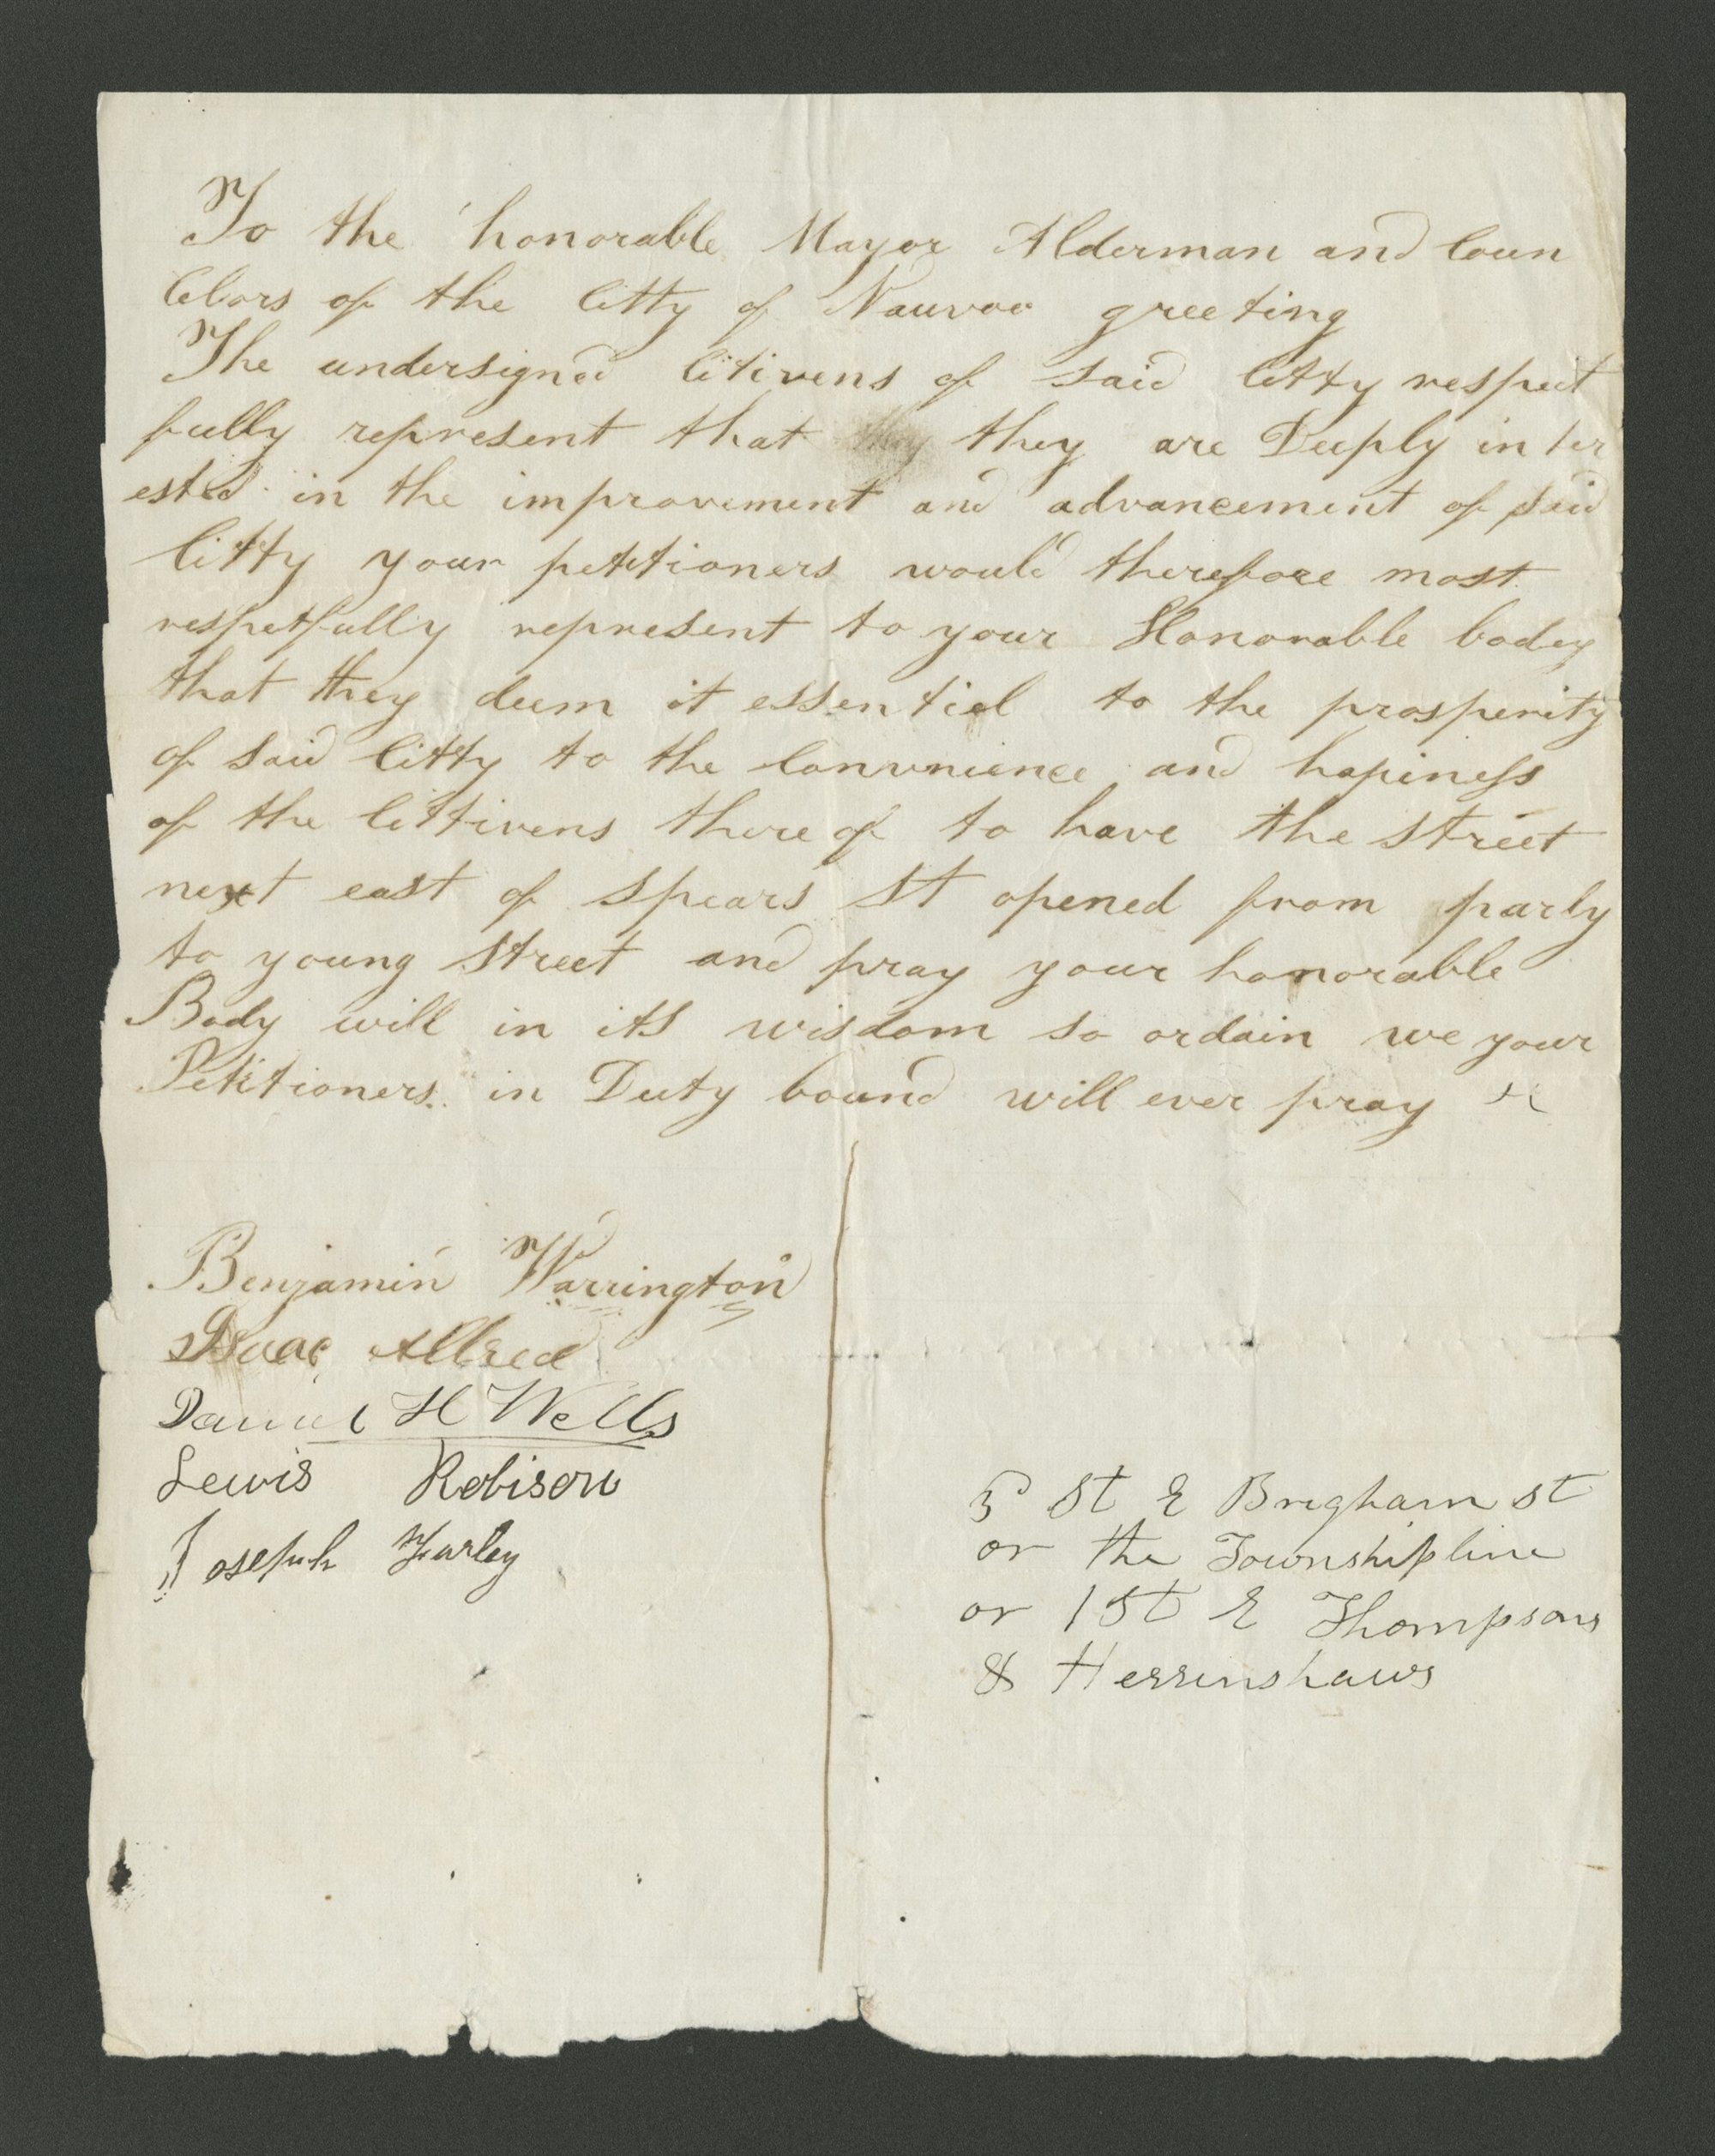 To the honorable Mayor Alderman and Coun
celors of the Citty of Nauvoo greeting
The undersigned Citivens of said Citty respect
fully represent that they they are Deeply inter
ested in the improvement and advancement of said
Citty your petitioners would therefore most
respetfully represent to your Honorable bodey
that they deem it essential to the prosperity
of said Citty to the Convunience and hapiness
of the Cittivens there of to have the street
next east of spears St opened from parly
to young Street and pray your honorable
Body will in its wisdom so ordain we your
Petitioners in Duty bound will ever pray
Benjamin Warrington
Isaac Allred
Daniel H Wells
Lewis Robison
Joseph Farley
St E Brigham st
or the Township line
or 1 St E Thompsons
& Herrinshaws